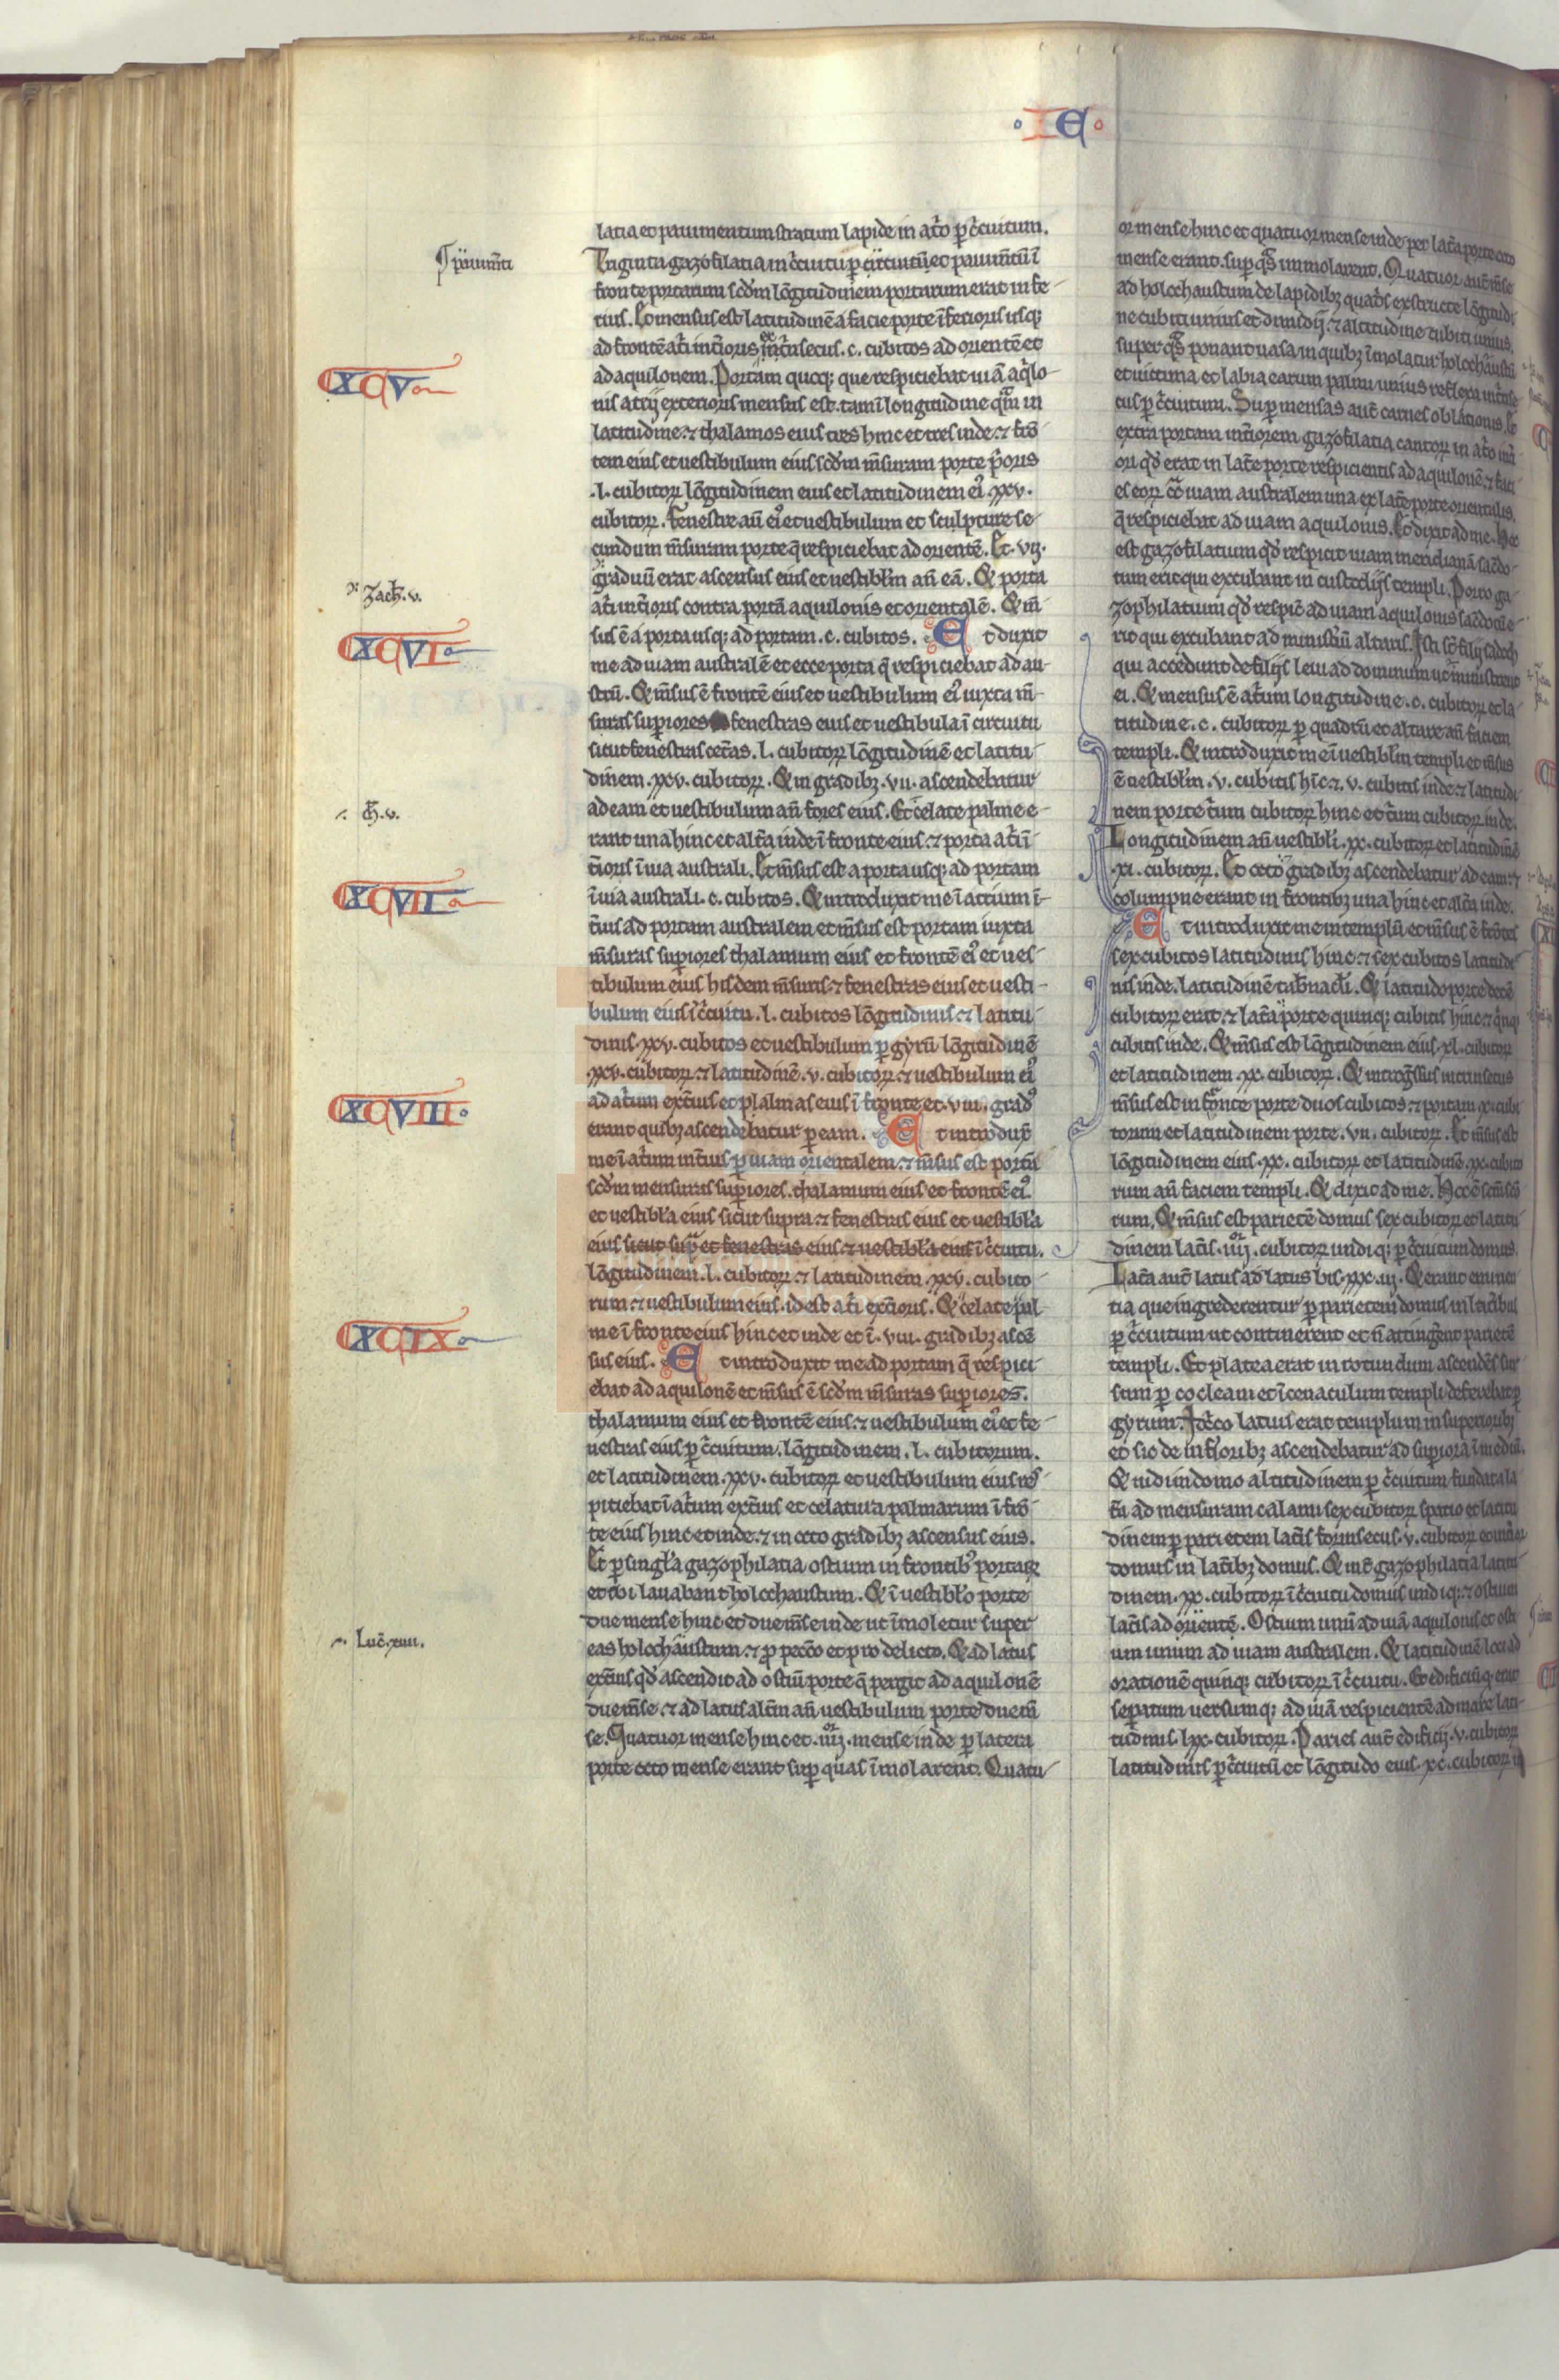 IE
latia et pauimentum stratum lapide in at̾o ꝑ c̾cuitum.
Triginta gazofilatia in c̾cuitu ꝑ circuitū et pauim̄tū ī
fronte portarum scd̾m lōgitudinem portarum erat infe-
rius. Et mensus est latitudinē a facie porte īferioris usq;
ad frontē at̾i int̾ioris ext̾nsecus. c. cubitos ad orientē et
ad aquilonem. Portam quoq; que respiciebat uiā aq̾lo-
nis atrij exterioris mensus est. tam ī longitudine qm̄ in
latitudine. ⁊ thalamos eius tres hinc et tres inde. ⁊ frō
tem eius et uestibulum eius scd̾m m̄suram porte p̾oris
.l. cubitoꝝ lōgitudinem eius et latitudinem ei᾽ .xxv.
cubitoꝝ. Fenestre aū ei᾽ et uestibulum et sculpture se-
cundum m̄suram porte q̄ respiciebat ad orientē. Et .vij.
graduū erat ascensus eius et uestibl̾m an̄ eā. Et porta
at̾i int̾ioris contra portā aquilonis et orientalē. Et m̄
sus ē a porta usq; ad portam .c. cubitos. Et duxit
me ad uiam australē et ecce porta q̄ respiciebat ad au-
strū. Et m̄sus ē frontē eius et uestibulum ei᾽ iuxta m̄-
suras suꝑiores fenestras eius et uestibula ī circuitu
sicut fenestras cet̾as. l. cubitoꝝ lōgitudinē et latitu-
dinem .xxv. cubitoꝝ. Et in gradibꝫ .vii. ascendebatur
ad eam et uestibulum an̄ fores eius. Et celate palme e-
rant una hinc et alt̾a inde ī fronte eius. ⁊ porta at̾i ī-
t̾ioris ī uia australi. Et m̄sus est a porta usq; ad portam
ī uia australi .c. cubitos. Et introduxit me ī atrium ī-
t̾ius ad portam australem et m̄sus est portam iuxta
m̄suras suꝑiores thalamum eius et frontē ei᾽ et ues-
tibulum eius hisdem m̄suris. ⁊ fenestras eius et uesti-
bulum eius ī c̾cuitu .l. cubitos lōgitudinis. ⁊ latitu-
dinis .xxv. cubitos et uestibulum ꝑ gyrū lōgitudinē
.xxv. cubitoꝝ. ⁊ latitudinē .v. cubitoꝝ. ⁊ uestibulum ei᾽
ad at̾um ext̾ius et plalmas eius ī fronte et .viii. grad᾽
erant quibꝫ ascendebatur ꝑ eam. Et introdux̾
me ī at̾um int̾ius ꝑ uiam orientalem. ⁊ m̄sus est portā
scd̾m mensuras suꝑiores. thalamum eius et frontē ei᾽
et uestibl̾a eius sicut supra. ⁊ fenestras eius et uestibl̾a
eius sicut sup̾ et fenestras eius. ⁊ uestibl̾a eius ī c̾cuitu.
lōgitudinem .l. cubitoꝝ. ⁊ latitudinem .xxv. cubito-
rum. ⁊ uestibulum eius. id est at̾i ext̾ioris. Et celate pal-
me ī fronte eius hinc et inde et ī .viii. gradibꝫ ascē
sus eius. Et introduxit me ad portam q̄ respici
ebat ad aquilonē et m̄sus ē scd̾m m̄suras suꝑiores.
thalamum eius et frontē eius. ⁊ uestibulum ei᾽ et fe-
nestras eius ꝑ c̾cuitum. lōgitudinem .l. cubitorum.
et latitudinem .xxv. cubitoꝝ et uestibulum eius res-
piciebat ī at̾um ext̾ius et celatura palmarum ī frō-
te eius hinc et inde. ⁊ in octo gradibꝫ ascensus eius.
Et ꝑ singl̾a gazophilatia ostium in frontib᾽ portaꝝ
et ibi lauabant holochaustum. Et ī uestibl̾o porte
due mense hinc et due m̄se inde ut īmoletur super
eas holochaustum. ⁊ ꝓ pecc̄o et pro delicto. Et ad latus
ext̾ius qd̾ ascendit ad ostiū porte q̄ pergit ad aquilonē
due m̄se. ⁊ ad latus alt̾m an̄ uestibulum porte due m̄
se. Quatuor mense hinc et .iiij. mense inde ꝑ latera
porte octo mense erant suꝑ quas īmolarent. Quatu-
¶ pauim̄ta
XCV
Zach̾. v.
XCVI
ch̾. v.
XCVII
XCVIII
XCIX
Luc̾. xiiii.
or mense hinc et quatuor mense inde per lat̾a porte octo
mense erant. suꝑ q̾s immolarent. Quatuor aut̄ m̄se
ad holochaustum de lapidibꝫ quad̾s exstructe lōgitudi
ne cubiti unius et dimidij. ⁊ altitudine cubiti unius.
super q̾s ponant uasa in quibꝫ īmolatur holochaustū
et uictima et labia earum palmi unius reflexa int̾nse
cus ꝑ c̾cuitum. Suꝑ mensas aut̄ carnes oblationis. Et
extra portam int̾iorem gazofilatia cantoꝝ in at̾o int̾i
ori qd̾ erat in lat̾e porte respicientis ad aquilonē. ⁊ faci
es eoꝝ cōt̾ uiam australem una ex lat̾e porte orientalis.
q̄ respiciebat ad uiam aquilonis. Et dixit ad me. Hoc
est gazofilatium qd̾ respicit uiam meridianā sac̾do-
tum erit qui excubant in custodijs templi. Porro ga-
zophilatium qd̾ respic̄ ad uiam aquilonis sac̾dotū e-
rit qui excubant ad minist̾iū altaris. Isti st̄ filij sadoch
qui accedunt de filijs leui ad dominum ut ministrent
ei. Et mensus ē at̾um longitudine .c. cubitoꝝ et la-
titudine .c. cubitoꝝ ꝑ quad̾tū et altare an̄ faciem
templi. Et introduxit me ī uestibl̾m templi et m̄sus
ē uestibl̾m .v. cubitis hīc. ⁊ .v. cubitis inde. ⁊ latitudi
nem porte t̾um cubitoꝝ hinc et t̾um cubitoꝝ inde.
Longitudinem aū uestibl̾i .xx. cubitoꝝ et latitudinē
.xi. cubitoꝝ. Et octo gradibꝫ ascendebatur ad eam. ⁊
columpne erant in frontibꝫ una hinc et alt̾a inde.
Et introduxit me in templū et m̄sus ē frōtes
sex cubitos latitudinis hinc. ⁊ sex cubitos latitudi-
nis inde. latitudinē tab̾nacl̾i. Et latitudo porte decē
cubitoꝝ erat. ⁊ lat̾a porte quinq; cubitis hinc. ⁊ q̾nq;
cubitis inde. Et m̄sus est lōgitudinem eius .xl. cubitoꝝ
et latitudinem .xx. cubitoꝝ. Et introg̾ssus intrinsecus
m̄sus est in fronte porte duos cubitos. ⁊ portam .x. cubi
torum et latitudinem porte .vii. cubitoꝝ. Et m̄sus est
lōgitudinem eius .xx. cubitoꝝ et latitudinē .xx. cubito
rum an̄ faciem templi. Et dixit ad me. Hoc ē sc̄m sc̄o
rum. Et m̄sus est parietē domus sex cubitoꝝ et latitu
dinem lat̾is .iiij. cubitoꝝ undiq; ꝑ c̾cuitum domus.
Lat̾a aut̄ latus ad latus bis .xxx.iij. Et erant eminen
tia que ingrederentur ꝑ parietem domus in lat̾ibus
ꝑ c̾cuitum ut continerent et n̄ attinger̄t parietē
templi. Et platea erat in rotundum ascendēs sur
sum ꝑ cocleam et ī cenaculum templi deferebat ꝑ
gyrum. Idc̾co latius erat templum in superioribꝫ
et sic de inf̾ioribꝫ ascendebatur ad suꝑiora ī mediū.
Et uidi in domo altitudinem ꝑ c̾cuitum fundata la
t̾a ad mensuram calami sex cubitoꝝ spatio et latitu
dinem ꝑ parietem lat̾is forinsecus .v. cubitoꝝ et int̾ior
domus in lat̾ibꝫ domus. Et int̾ gazophilatia latitu-
dinem .xx. cubitoꝝ ī c̾cuitu domus undiq;. ⁊ ostium
lat̾is ad orientē. Ostium unū ad uiā aquilonis et osti
um unum ad uiam australem. Et latitudinē loci ad
orationē quinq; cubitoꝝ ī c̾cuitu. Et edificiū q̄ erat
seꝑatum uersumq; ad uiā respicientē ad mare lati-
tudinis .lxx. cubitoꝝ. Paries aut̄ edificij .v. cubitoꝝ
latitudinis ꝑ c̾cuitū et lōgitudo eius .xc. cubitoꝝ